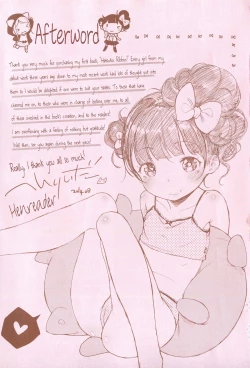 Afterword
Thank you very much for purchasing my first book, "Hatsukoi Ribbon". Every girl from my
debut work three years ago down to my most recent work had lots of thought put into
them so I would be delighted if you were to suit your tastes. To those that have
cheered me on, to those who were in charge of looking over me, to all
of those involved in the book's creation, and to the readers!
I am overflowing with a feeling of nothing but gratitude!
Well then, see you again during the next piece!
Really, I thank you all so much
Henreader